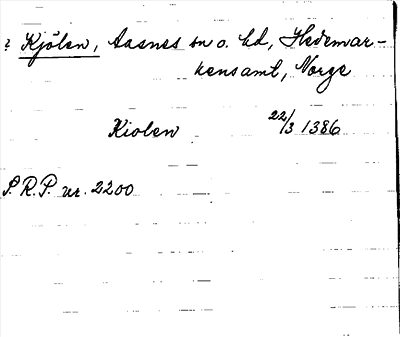 ? Kjölen, Aasnes sn o. hd, Hedemar-
kensamt, Norge
Kiolen 22/3 1386
S.R.P. nr. 2200